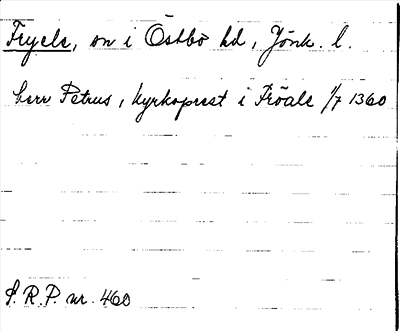 Fryele, sn i Östbo hd, Jönk. l.
herr Petrus, kyrkoprest i Fröale 1/7 1360
S. R. P. nr. 460